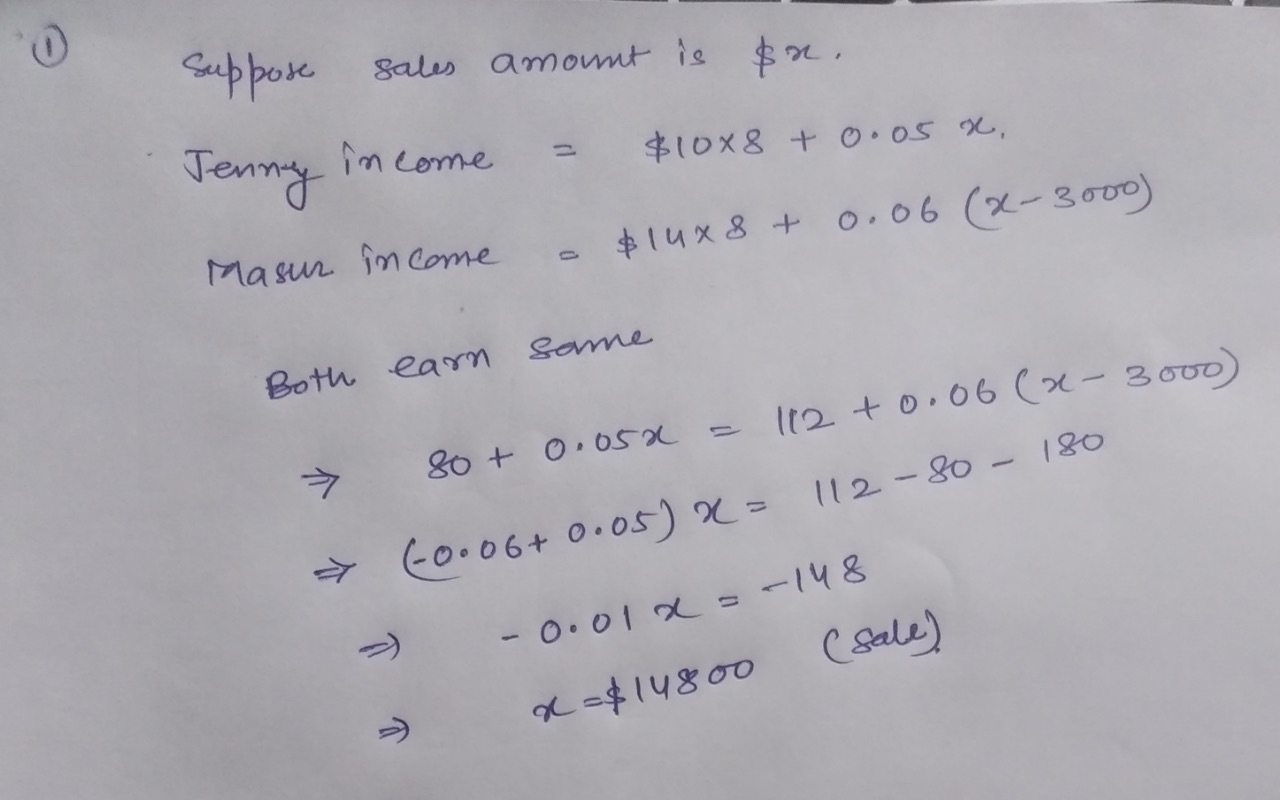 ① Suppose sales amount is $x.
Jenny income = $10×8 + 0.05 x.
Masur income = $14×8 + 0.06 (x-3000)
Both earn same
⇒ 80 + 0.05x = 112 + 0.06 (x-3000)
⇒ (-0.06+0.05) x = 112-80-180
⇒ -0.01 x = -148
⇒ x=$14800 (sale).